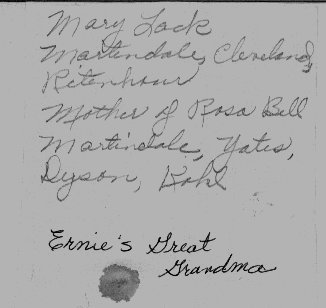 Mary Lack
Martindale, Cleveland,
Ritenhour
Mother of Rosa Bell
Martindale, Yates,
Dyson, Kohl
Ernie's Great
Grandma